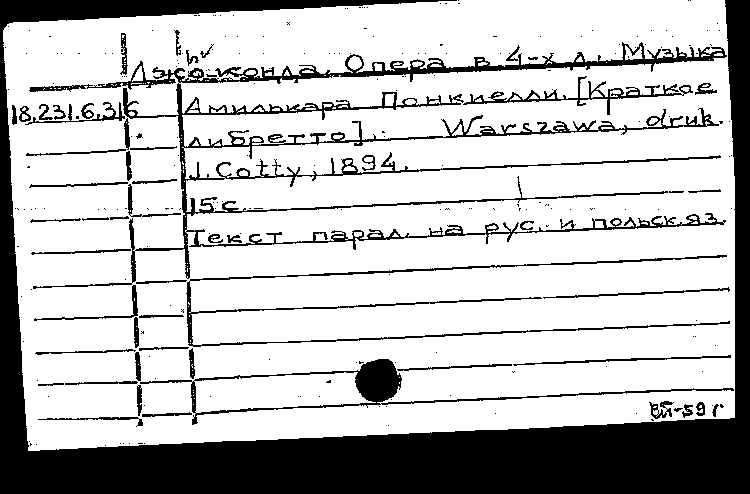 Джоконда. Опера в 4-х д. Музыка
18.231.6.316 Амилькара Понкиелли. [Краткое
либретто]. Warszawa, druk.
J. Cotty, 1894.
15 с.
Текст парал. на рус. и польск. яз.